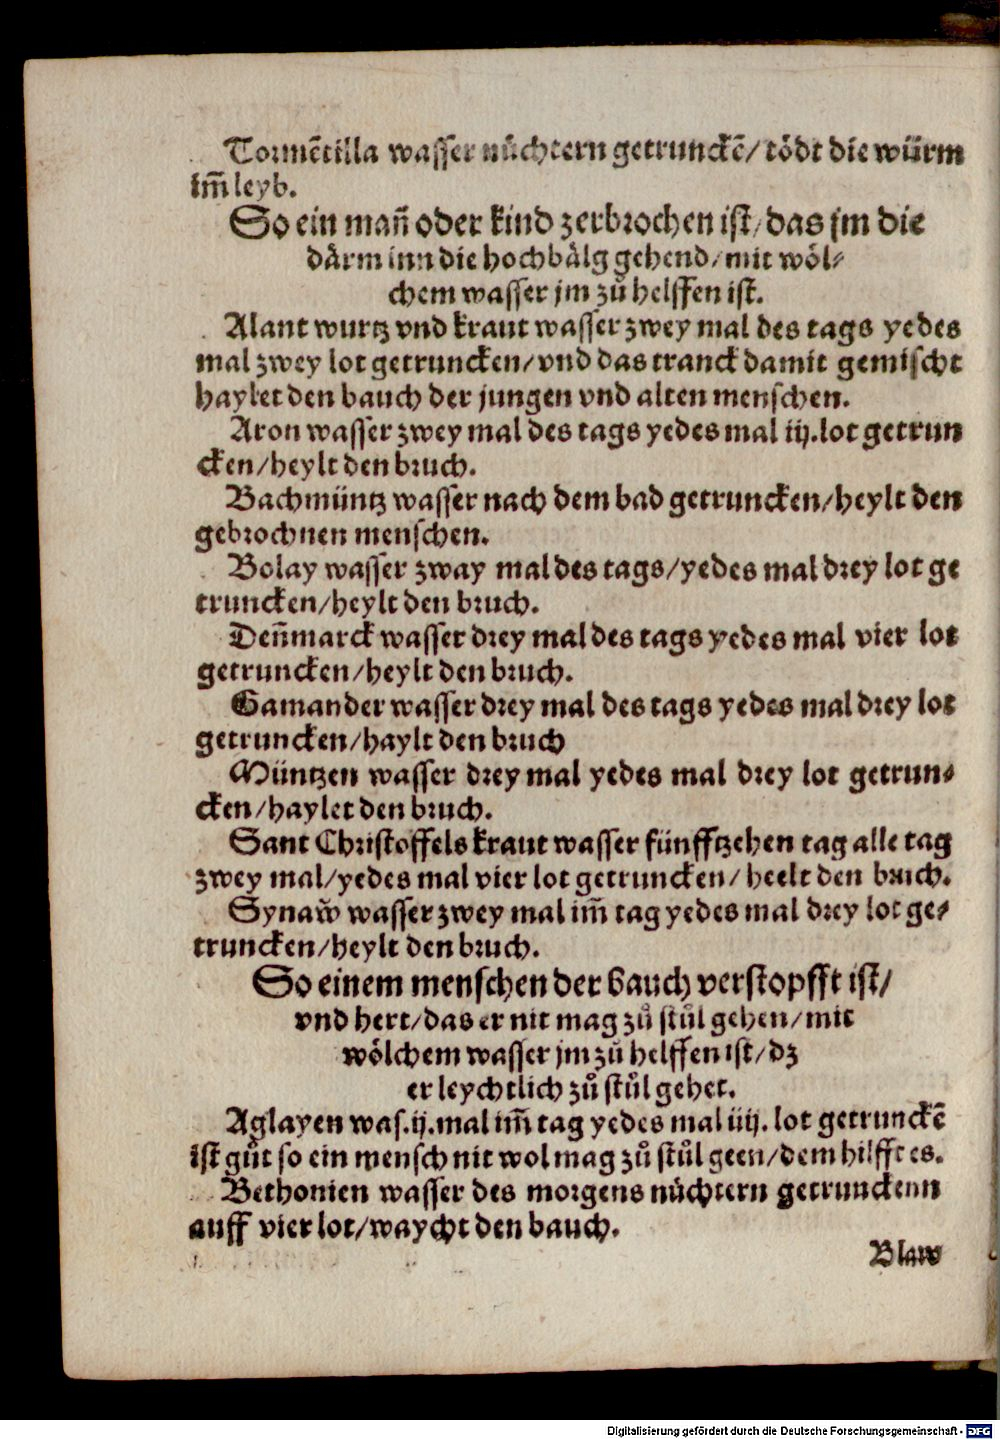 Tormētilla wasser nüchtern getrunckē/ tödt die würm
im̄ leyb.
So ein man̄ oder kind zerbrochen ist/ das jm die
därm inn die hochbälg gehend/ mit wöl⸗
chem wasser jm zů helffen ist.
Alant wurtz vnd kraut wasser zwey mal des tags yedes
mal zwey lot getruncken/ vnd das tranck damit gemischt
haylet den bauch der jungen vnd alten menschen.
Aron wasser zwey mal des tags yedes mal iij. lot getrun
cken/ heylt den bruch.
Bachmüntz wasser nach dem bad getruncken/ heylt den
gebrochnen menschen.
Bolay wasser zway mal des tags/ yedes mal drey lot ge
truncken/ heylt den bruch.
Den̄marck wasser drey mal des tags yedes mal vier lot
getruncken/ heylt den bruch.
Gamander wasser drey mal des tags yedes mal drey lot
getruncken/ haylt den bruch
Müntzen wasser drey mal yedes mal drey lot getrun⸗
cken/ haylet den bruch.
Sant Christoffels kraut wasser fünfftzehen tag alle tag
zwey mal/ yedes mal vier lot getruncken/ heelt den bruch.
Synaw̆ wasser zwey mal im̄ tag yedes mal drey lot ge⸗
truncken/ heylt den bruch.
So einem menschen der bauch verstopfft ist/
vnd hert/ das er nit mag zů stůl gehen/ mit
wölchem wasser jm zů helffen ist/ dz
er leychtlich zů stůl gehet.
Aglayen was. ij. mal im̄ tag yedes mal iiij. lot getrunckē
ist gůt so ein mensch nit wol mag zů stůl geen/ dem hilfft es.
Bethonien wasser des morgens nüchtern getrunckenn
auff vier lot/ waycht den bauch.
Blaw
Digitalisierung gefördert durch die Deutsche Forschungsgemeinschaft - DFG